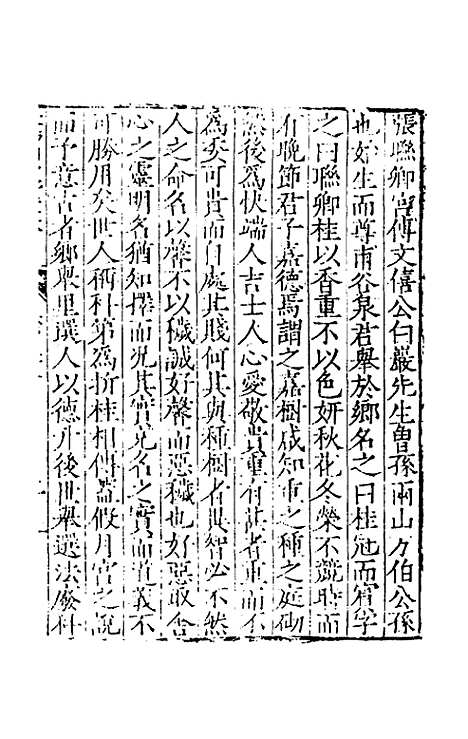 張聮卿宮傅文僖公白巖先生曾孫兩山方伯公孫
也始生而尊甫谷泉君舉於鄉名之曰桂冠而賓字
之曰聮卿桂以香重不以色妍秋花冬榮不競時而
有晚節君子嘉德焉謂之嘉樹咸知重之種之庭砌
然後為快端人吉士人心愛敬貴重有甚者重而不
為矣可貴而自處其賤何其與種樹者異智必不然
人之命名以馨不以穢誠好馨而惡穢也好惡取舍
心之靈明名猶知擇而況其實克名之實而道義不
可勝用矣世人稱科第為折桂相傳蓋假月宮之說
而予意古者鄉舉里選人以德升後世舉選法廢科